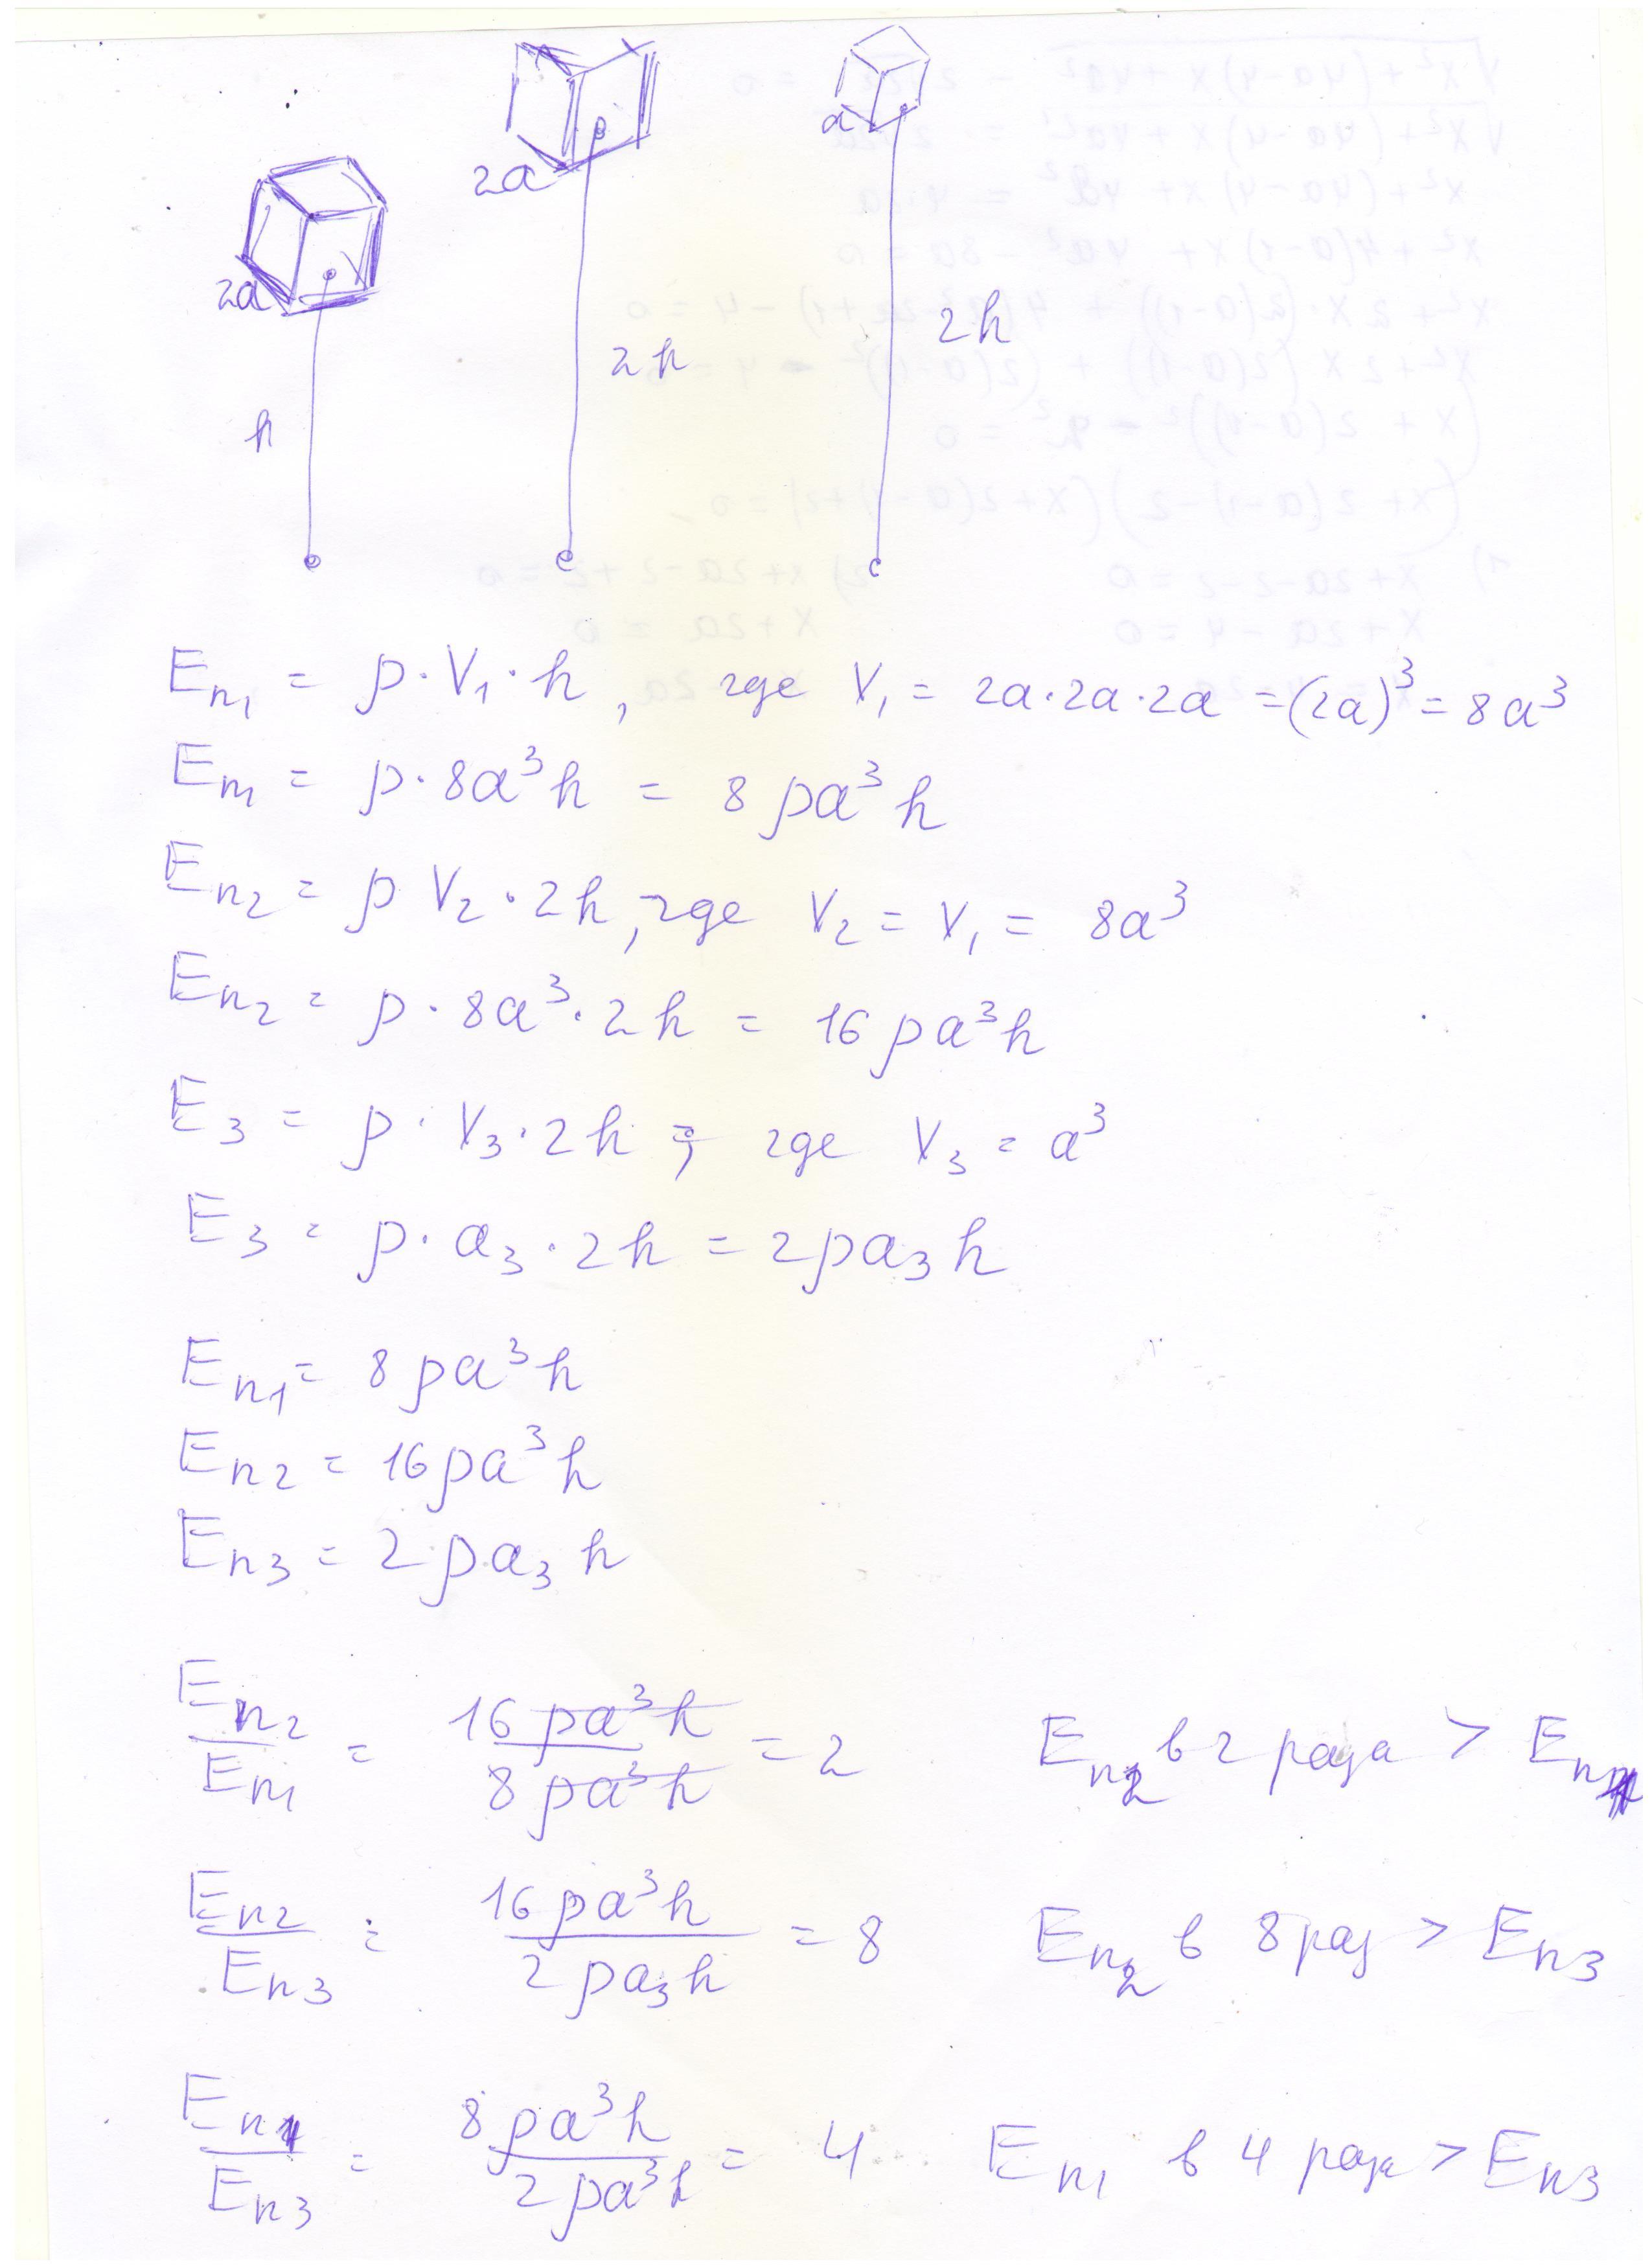 2a
2a
a
h
2h
2h
Eп₁ = p · V₁ · h, где V₁ = 2a · 2a · 2a = (2a)³ = 8a³
Eп₁ = p · 8a³h = 8pa³h
Eп₂ = p V₂ · 2h, где V₂ = V₁ = 8a³
Eп₂ = p · 8a³ · 2h = 16pa³h
E₃ = p · V₃ · 2h; где V₃ = a³
E₃ = p · a₃ · 2h = 2pa₃h
Eп₁ = 8pa³h
Eп₂ = 16pa³h
Eп₃ = 2pa₃h
Eп₂/Eп₁ = 16pa³h/8pa³h = 2 Eп₂ в 2 раза > Eп₁
Eп₂/Eп₃ = 16pa³h/2pa₃h = 8 Eп₂ в 8 раз > Eп₃
Eп₁/Eп₃ = 8pa³h/2pa³h = 4 Eп₁ в 4 раза > Eп₃